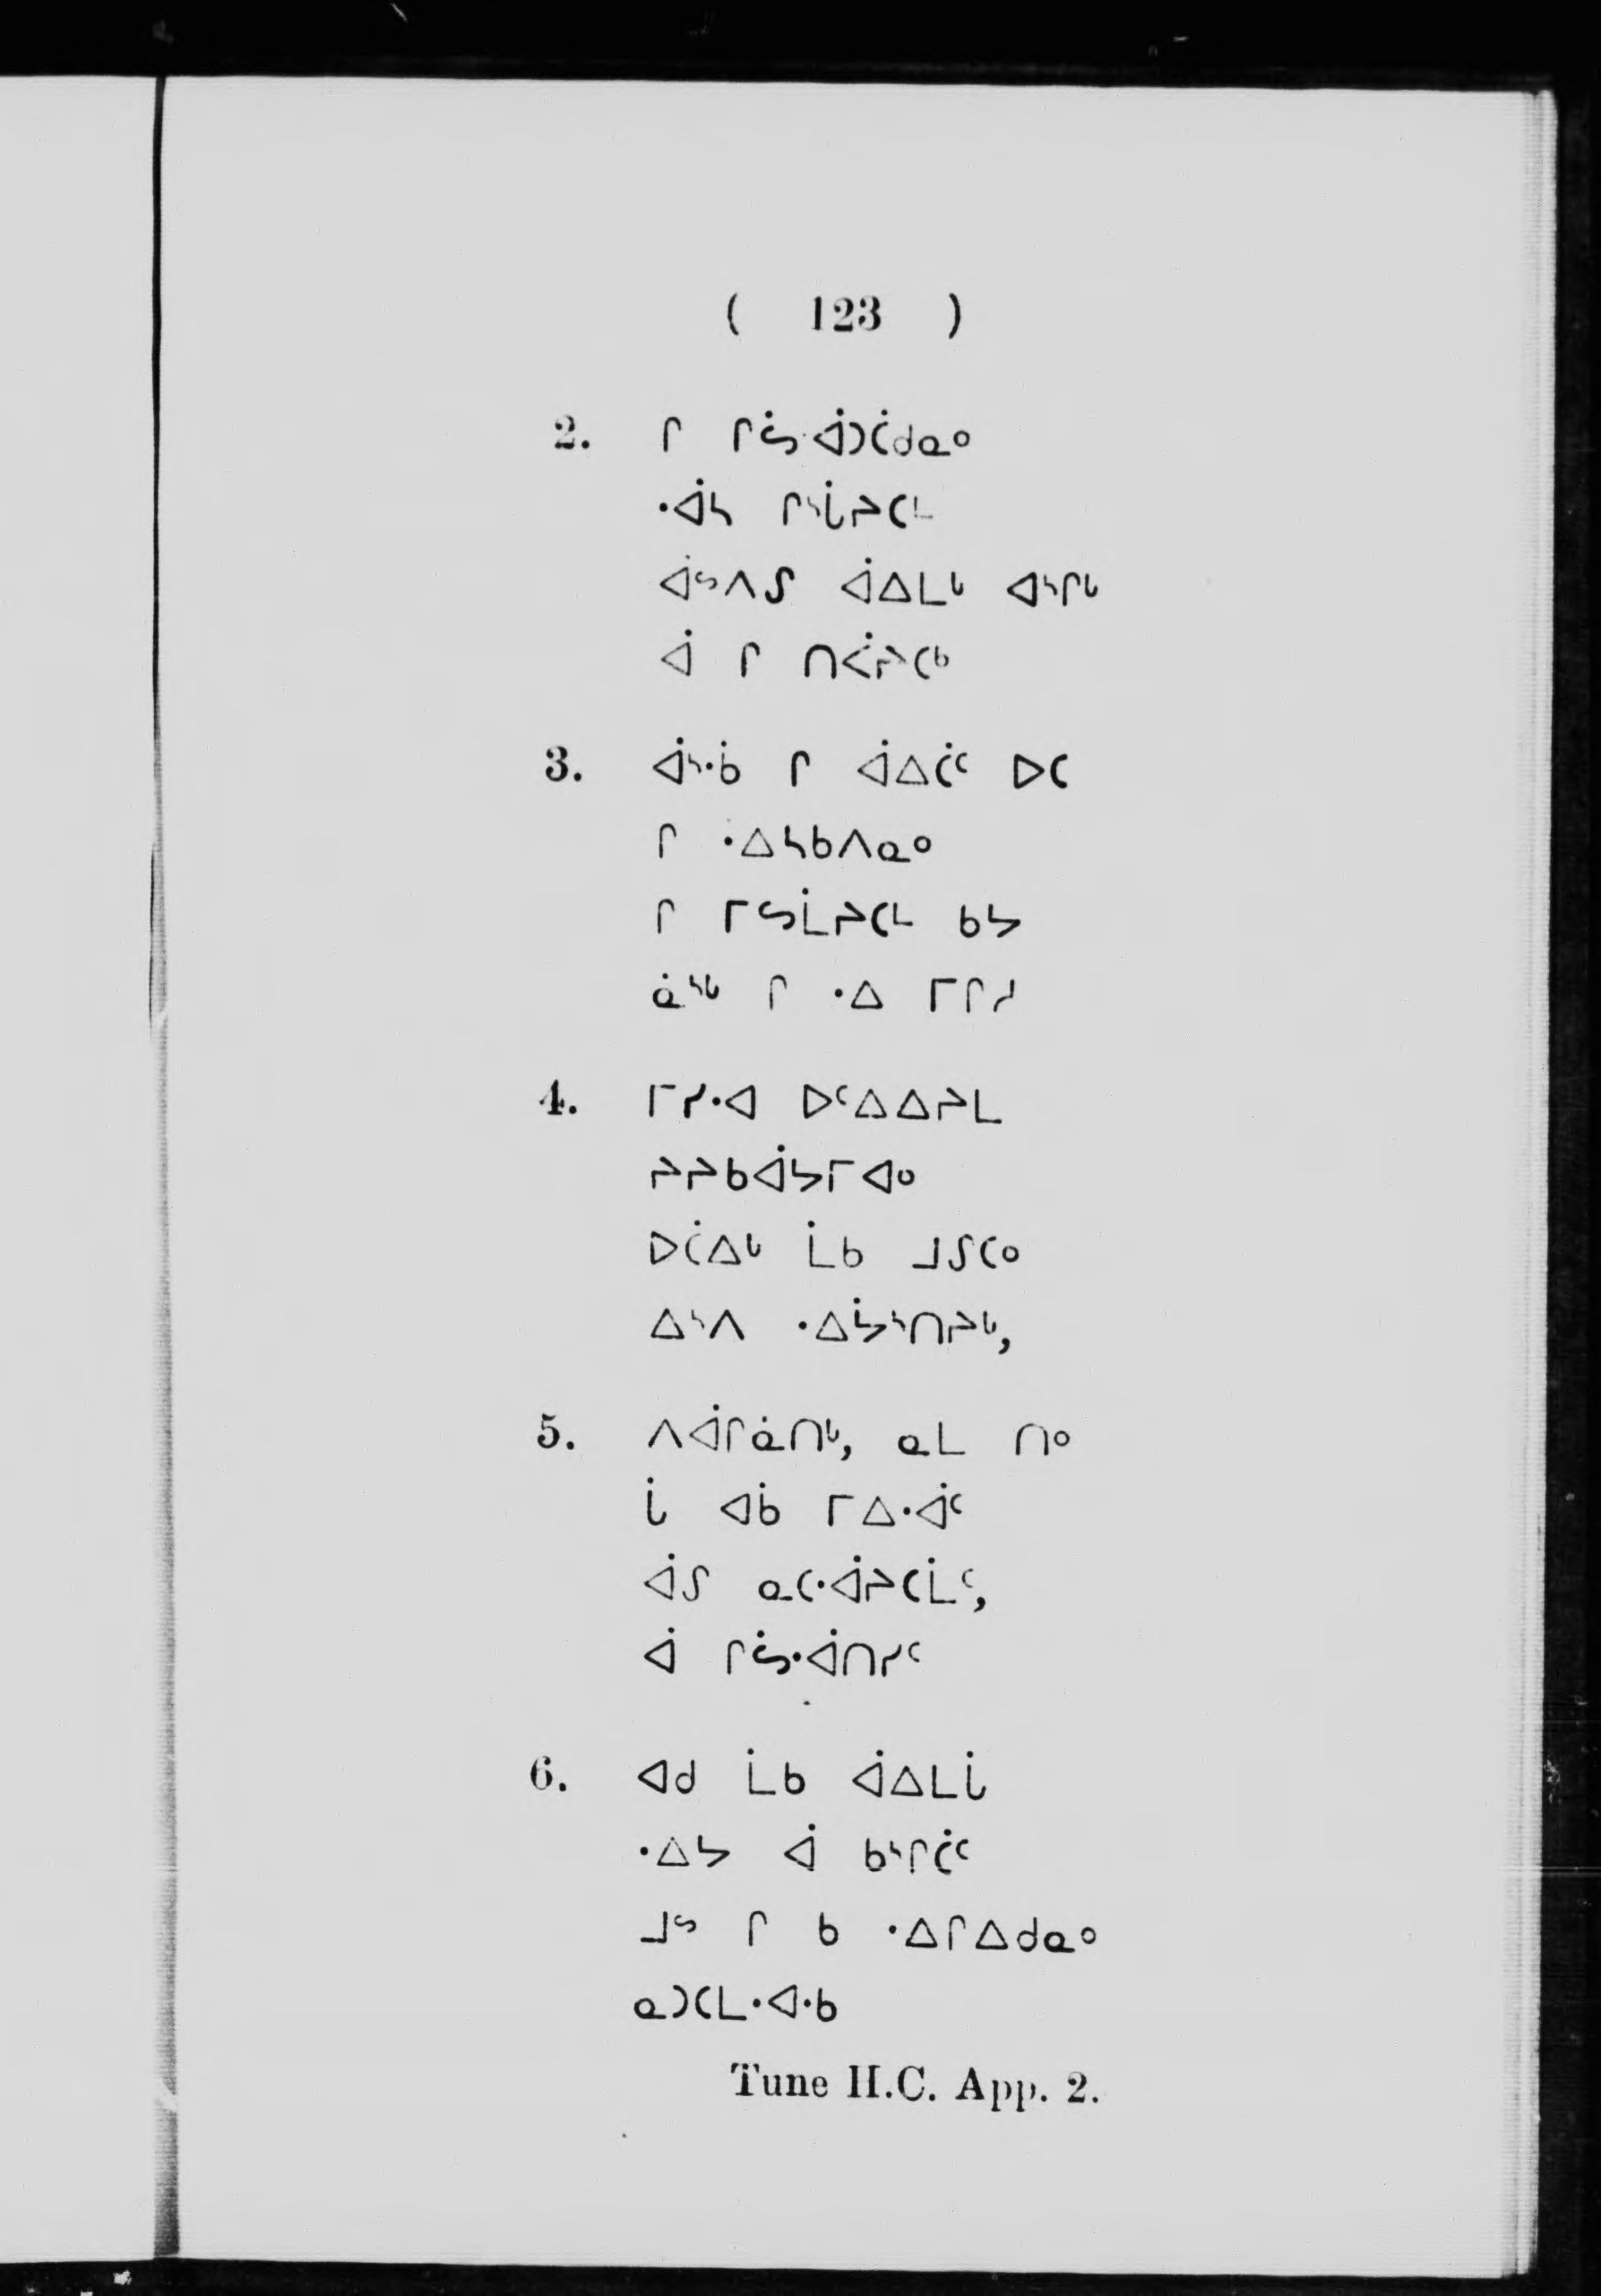 ( 123 )
2. ᒋ ᒋᔖᐋᑐᑖᑯᓇᐤ
ᐧᐋᓴ ᒋᔅᒑᔨᑕᒻ
ᐋᔥᐱᔑ ᐋᐃᒪᒡ ᐊᔅᒋᒡ
ᐋ ᒋ ᑎᐹᔨᑕᒃ
3. ᐋᔅᐧᑳ ᒋ ᐋᐃᑖᑦ ᐅᑕ
ᒋ ᐧᐃᓴᑲᐱᓇᐤ
ᒋ ᒥᔕᒫᔨᑕᒻ ᑲᔭ
ᓈᔅᒡ ᒋ ᐧᐃ ᒥᒋᓱ
4. ᒥᓯᐧᐊ ᐅᑦᐃᐃᔨᒪ
ᔨᔨᑲᐋᔭᒥᐊᐤ
ᐅᑖᐃᒡ ᒫᑲ ᒧᔑᑕᐤ
ᐃᔅᐱ ᐧᐃᔮᔅᑎᔨᒡ,
5. ᐱᐋᒋᓈᑎᒡ, ᓇᒪ ᑎᐤ
ᒑ ᐊᑳ ᒥᐃᐧᐋᑦ
ᐋᔑ ᓇᑕᐧᐋᔨᑕᒫᑦ,
ᐋ ᒋᔖᐧᐋᑎᓯᑦ
6. ᐊᑯ ᒫᑲ ᐋᐃᒪᒑ
ᐧᐃᔭ ᐋ ᑲᔅᒋᑖᑦ
ᒧᔥ ᒋ ᑲ ᐧᐃᒋᐃᑯᓇᐤ
ᓇᑐᑕᒪᐧᐊᐧᑲ
Tune H.C. App. 2.